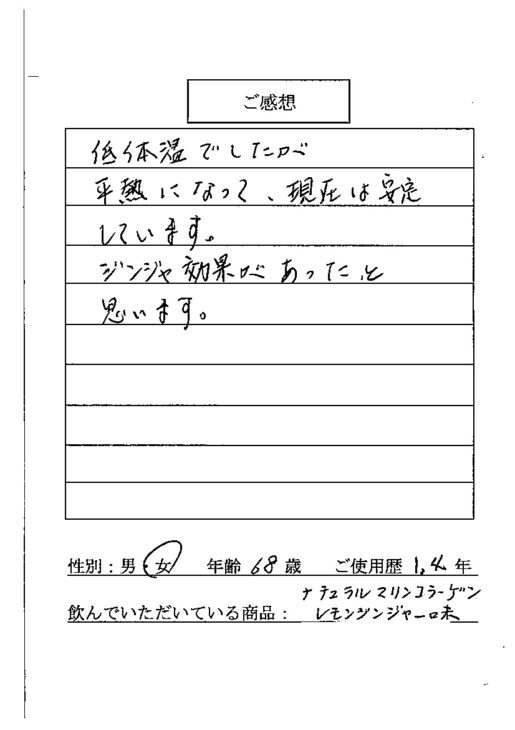 ご感想
低体温でしたが
平熱になって、現在は安定
しています。
ジンジャ効果があったと
思います。
性別：男・女 年齢 68 歳 ご使用歴 1,4 年
ナチュラルマリンコラーゲン
飲んでいただいている商品： レモンジンジャー味